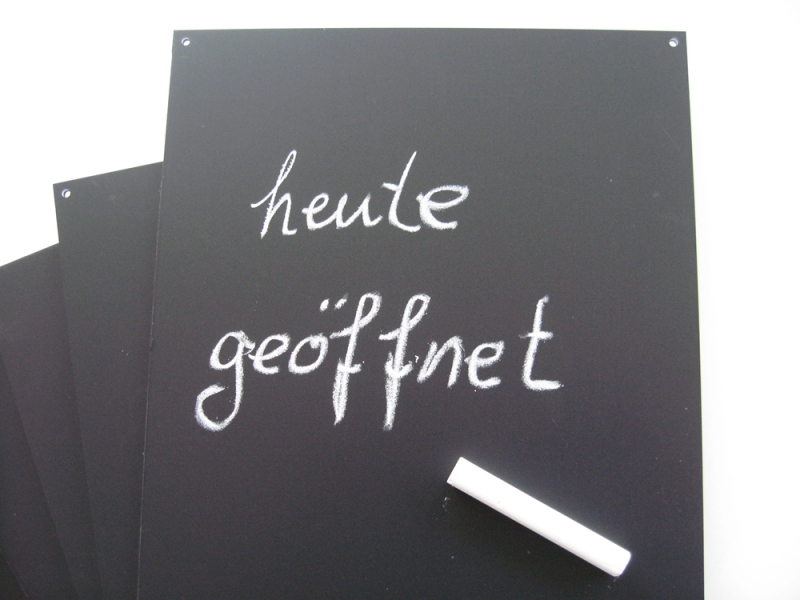 heute
geöffnet